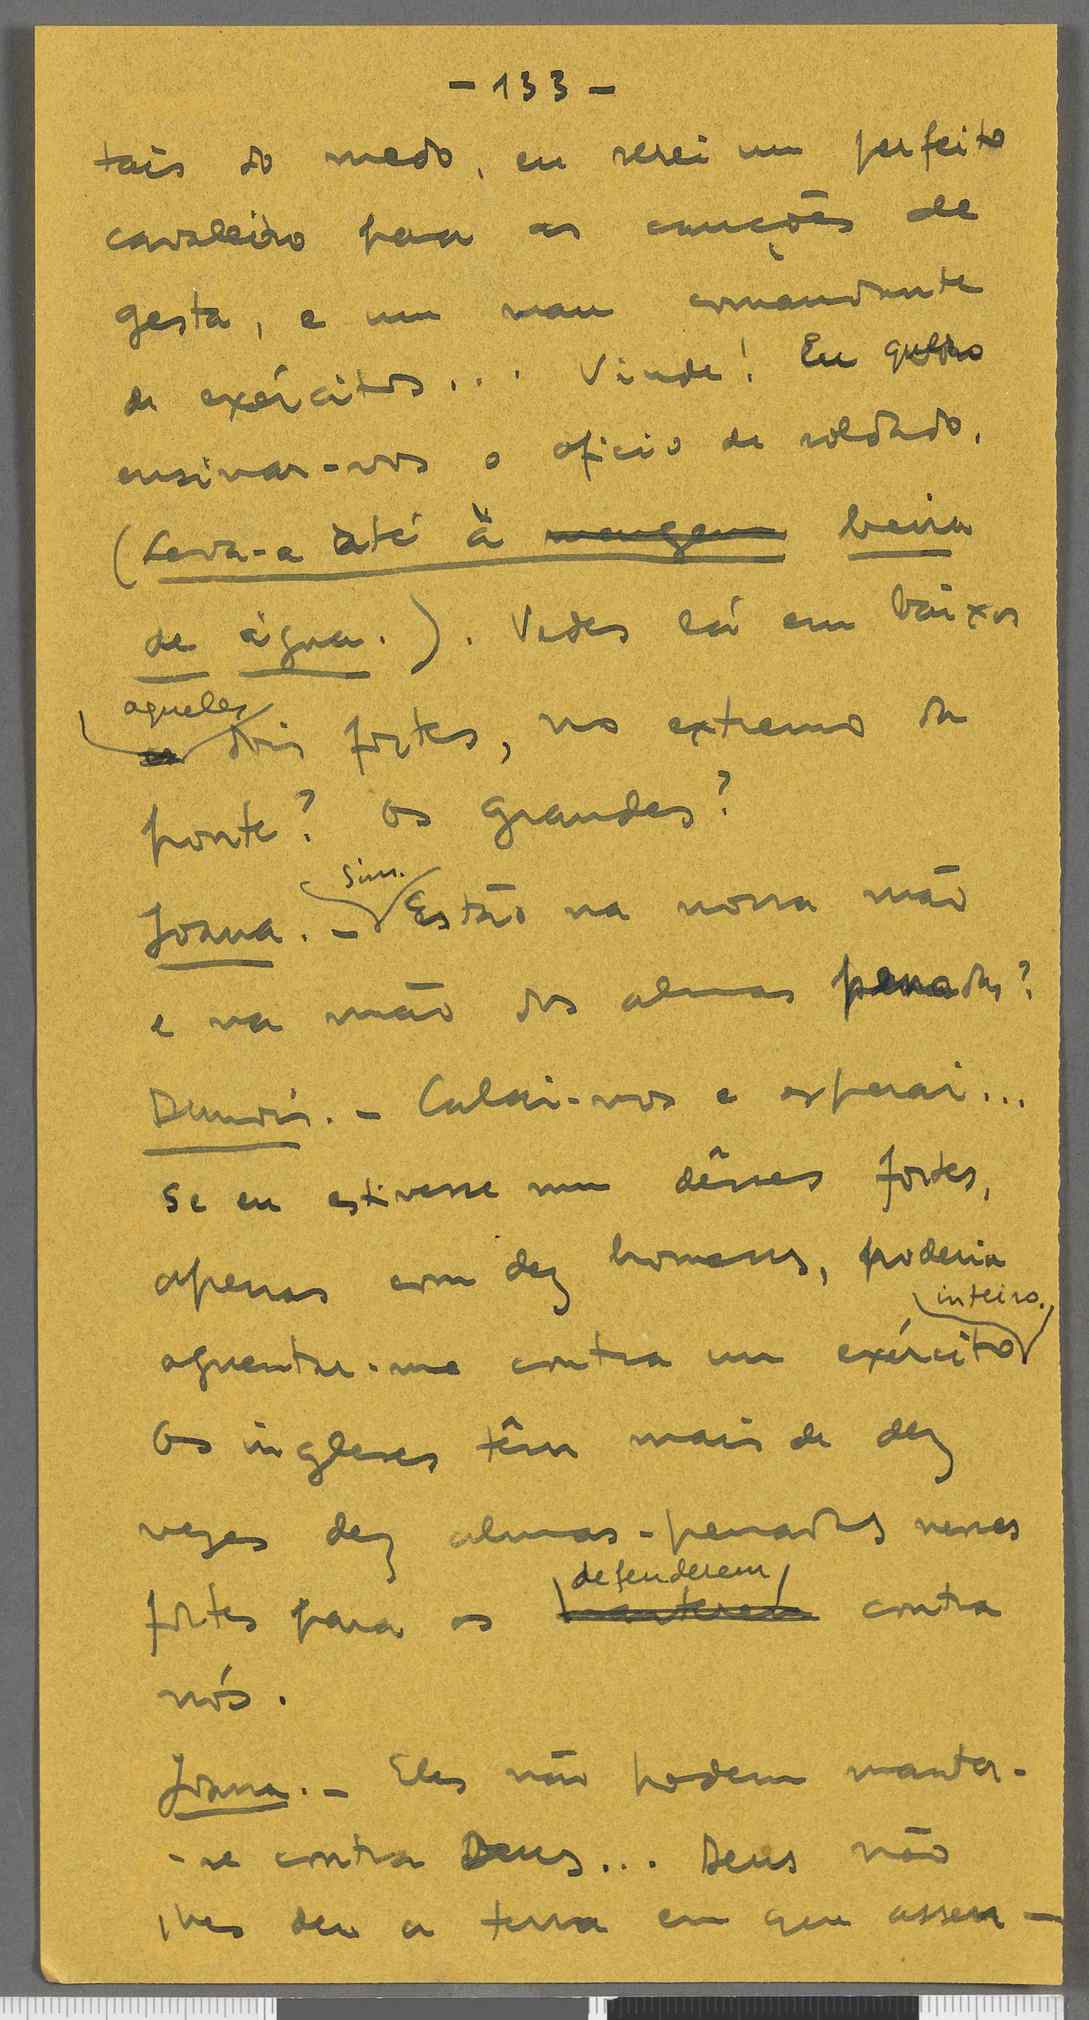 - 133 -
tais do medo, eu serei um perfeito
cavaleiro para as canções de
gesta, e um mau comandante
de exércitos... Vinde! Eu quero
ensinar-vos o ofício de soldado.
(Leva-a até à margem beira
de água.). Vedes lá em baixo os
aqueles
dois fortes, no extremo da
ponte? Os grandes?
sim.
Joana. - Estão na nossa mão
e na mão das almas penadas?
Dunois. - Calai-vos e esperai...
Se eu estivesse num dêsses fortes,
apenas com dez homens, poderia
inteiro.
aguentar-me contra um exército
Os ingleses têm mais de dez
vezes dez almas-penadas nesses
defenderem
fortes para os manterem contra
nós.
Joana. - Eles não podem manter-
-se contra Deus... Deus não
lhes deu a terra em que assen-